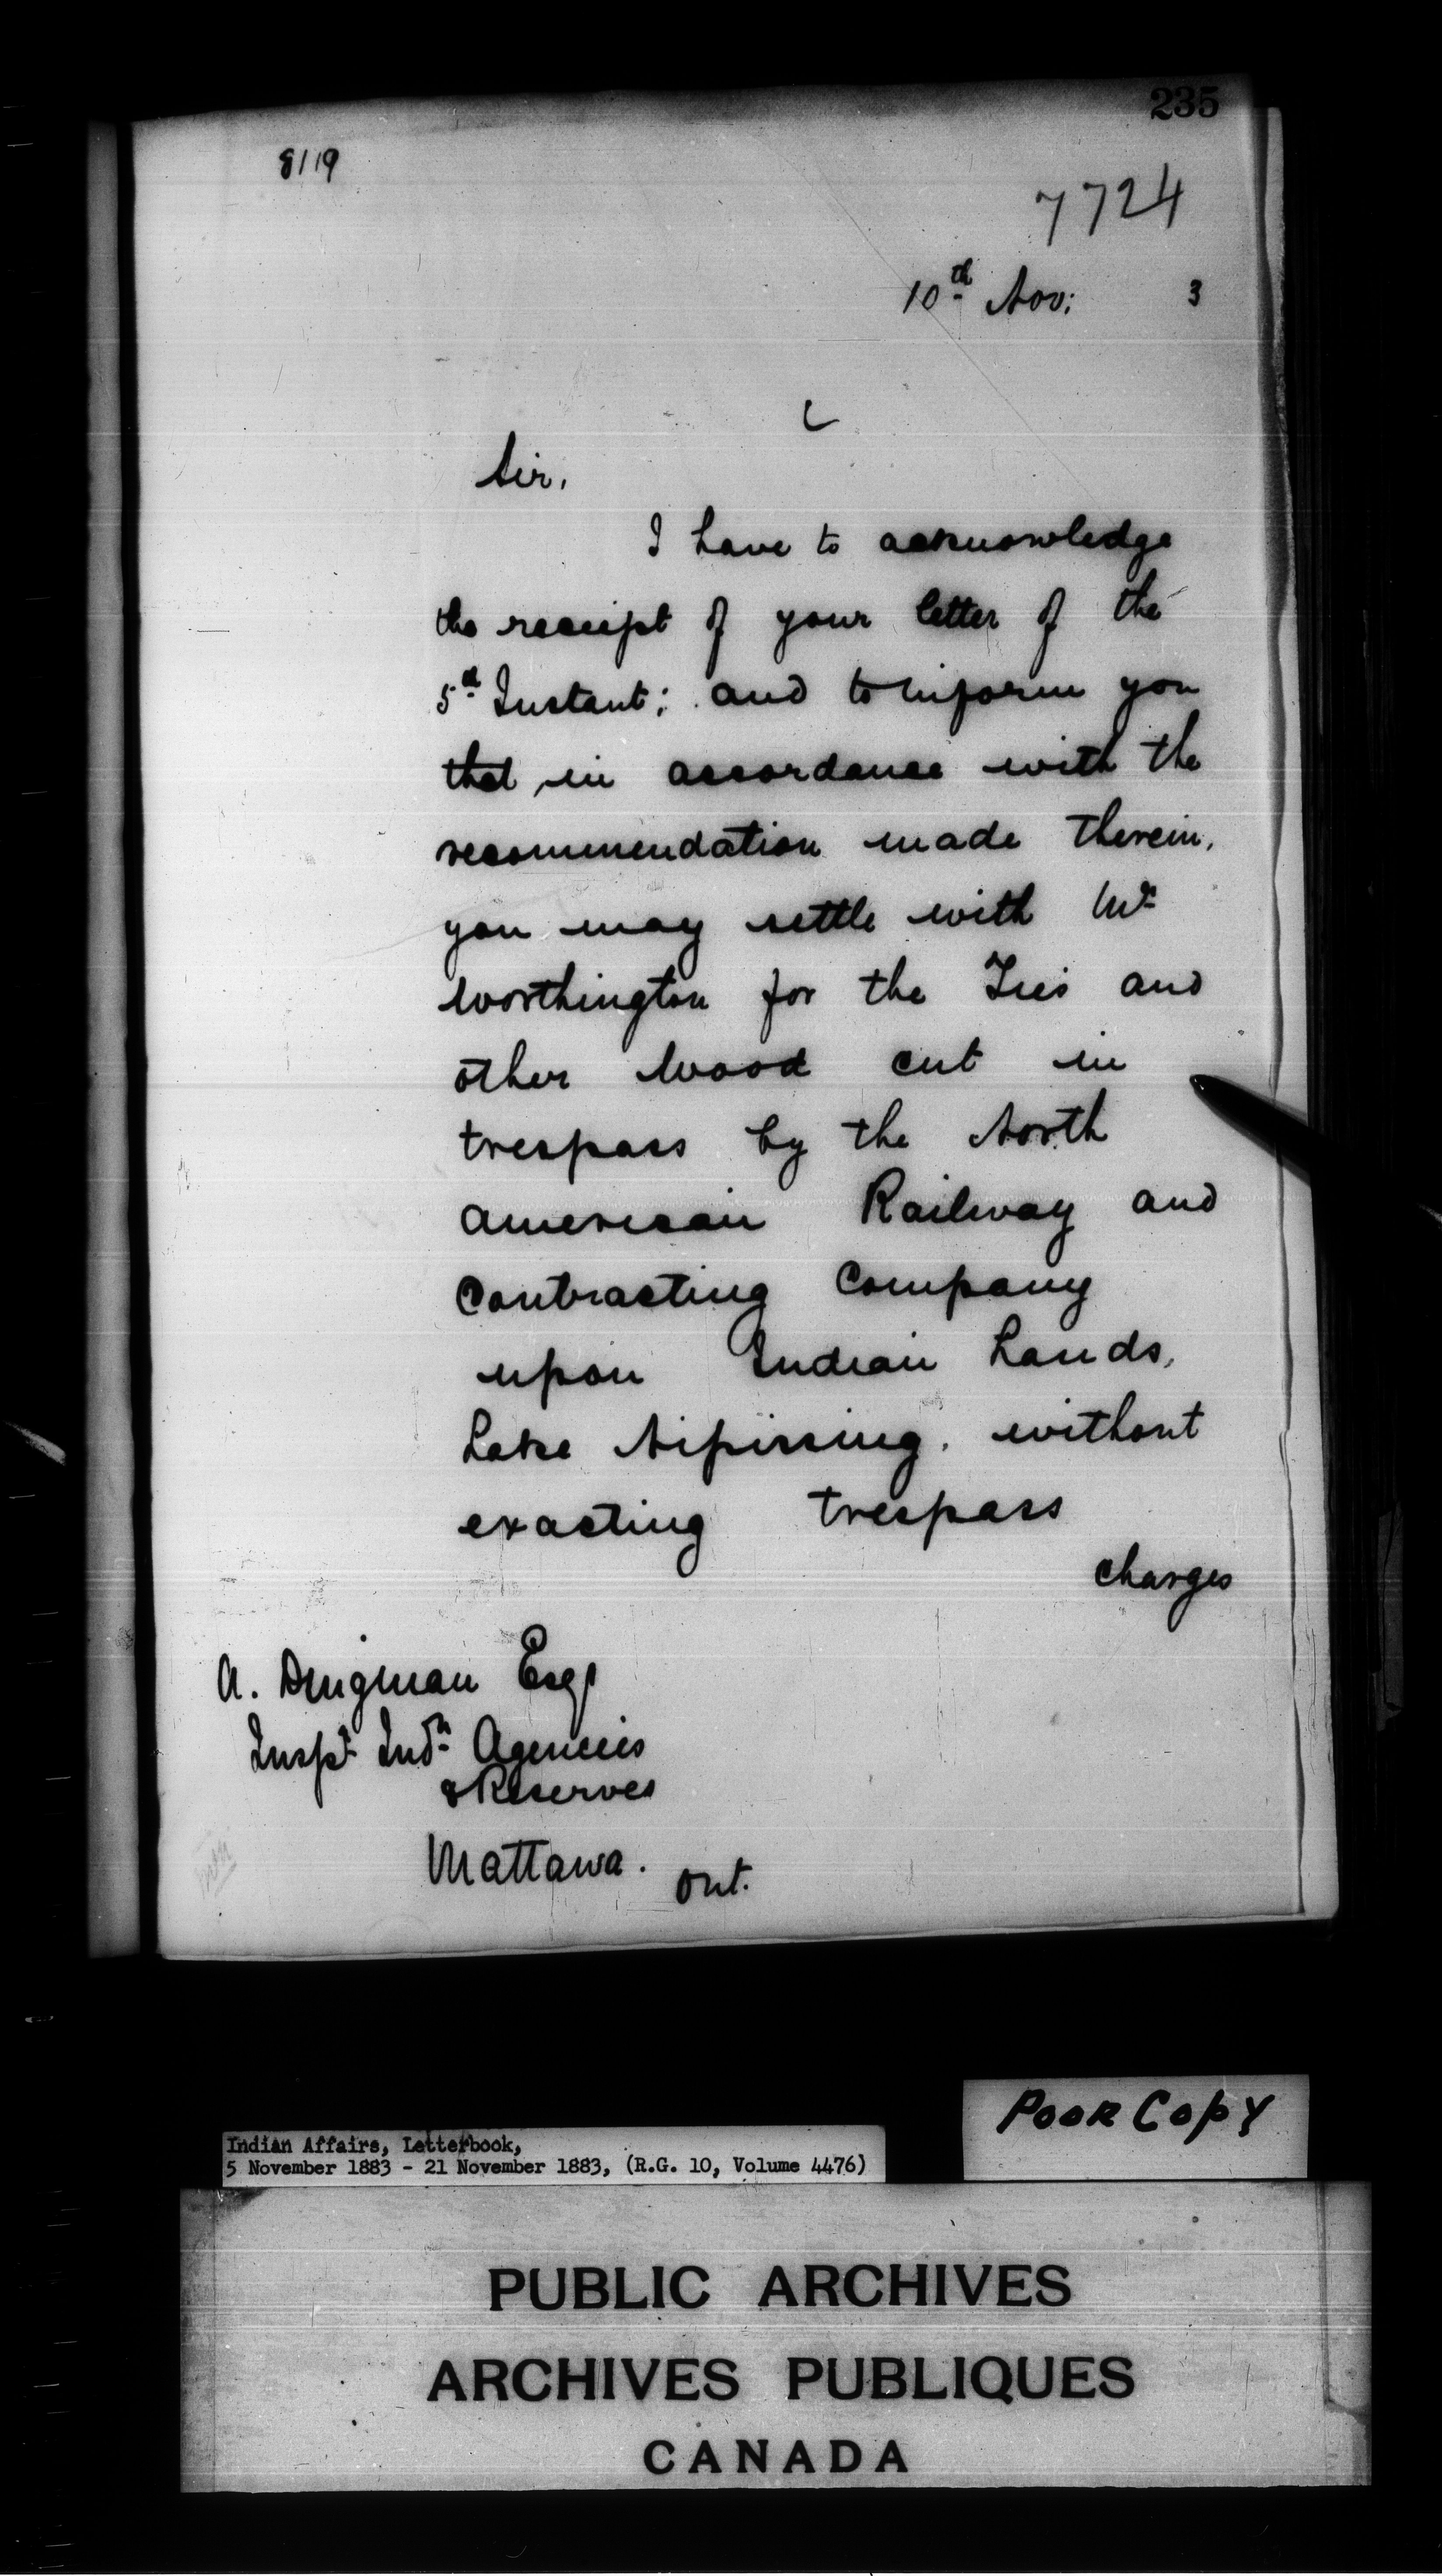 235
8119
7724
10th Nov: 3
Sir,
I have to acknowledge
the receipt of your letter of the
5th Instant; and to inform you
that in accordance with the
recommendation made therein,
you may settle with Mr
Worthington for the Ties and
other wood cut in
trespass by the North
American Railway and
Contracting Company
upon Indian Lands,
Lake Nipissing, without
exacting trespass
charges
A. Dingman Esqr
Inspr Indn Agencies
& Reserves
Mattawa. Ont.
Poor Copy
Indian Affairs, Letterbook,
5 November 1883 - 21 November 1883, (R.G. 10, Volume 4476)
PUBLIC ARCHIVES
ARCHIVES PUBLIQUES
CANADA